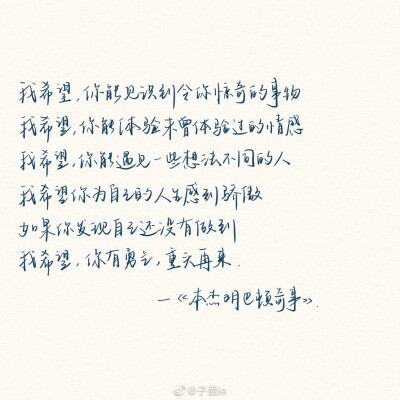 我希望，你能见识到令你惊奇的事物
我希望，你能体验未曾体验过的情感
我希望，你能遇见一些想法不同的人
我希望你为自己的人生感到骄傲
如果你发现自己还没有做到
我希望，你有勇气，重头再来.
—《本杰明巴顿奇事》.